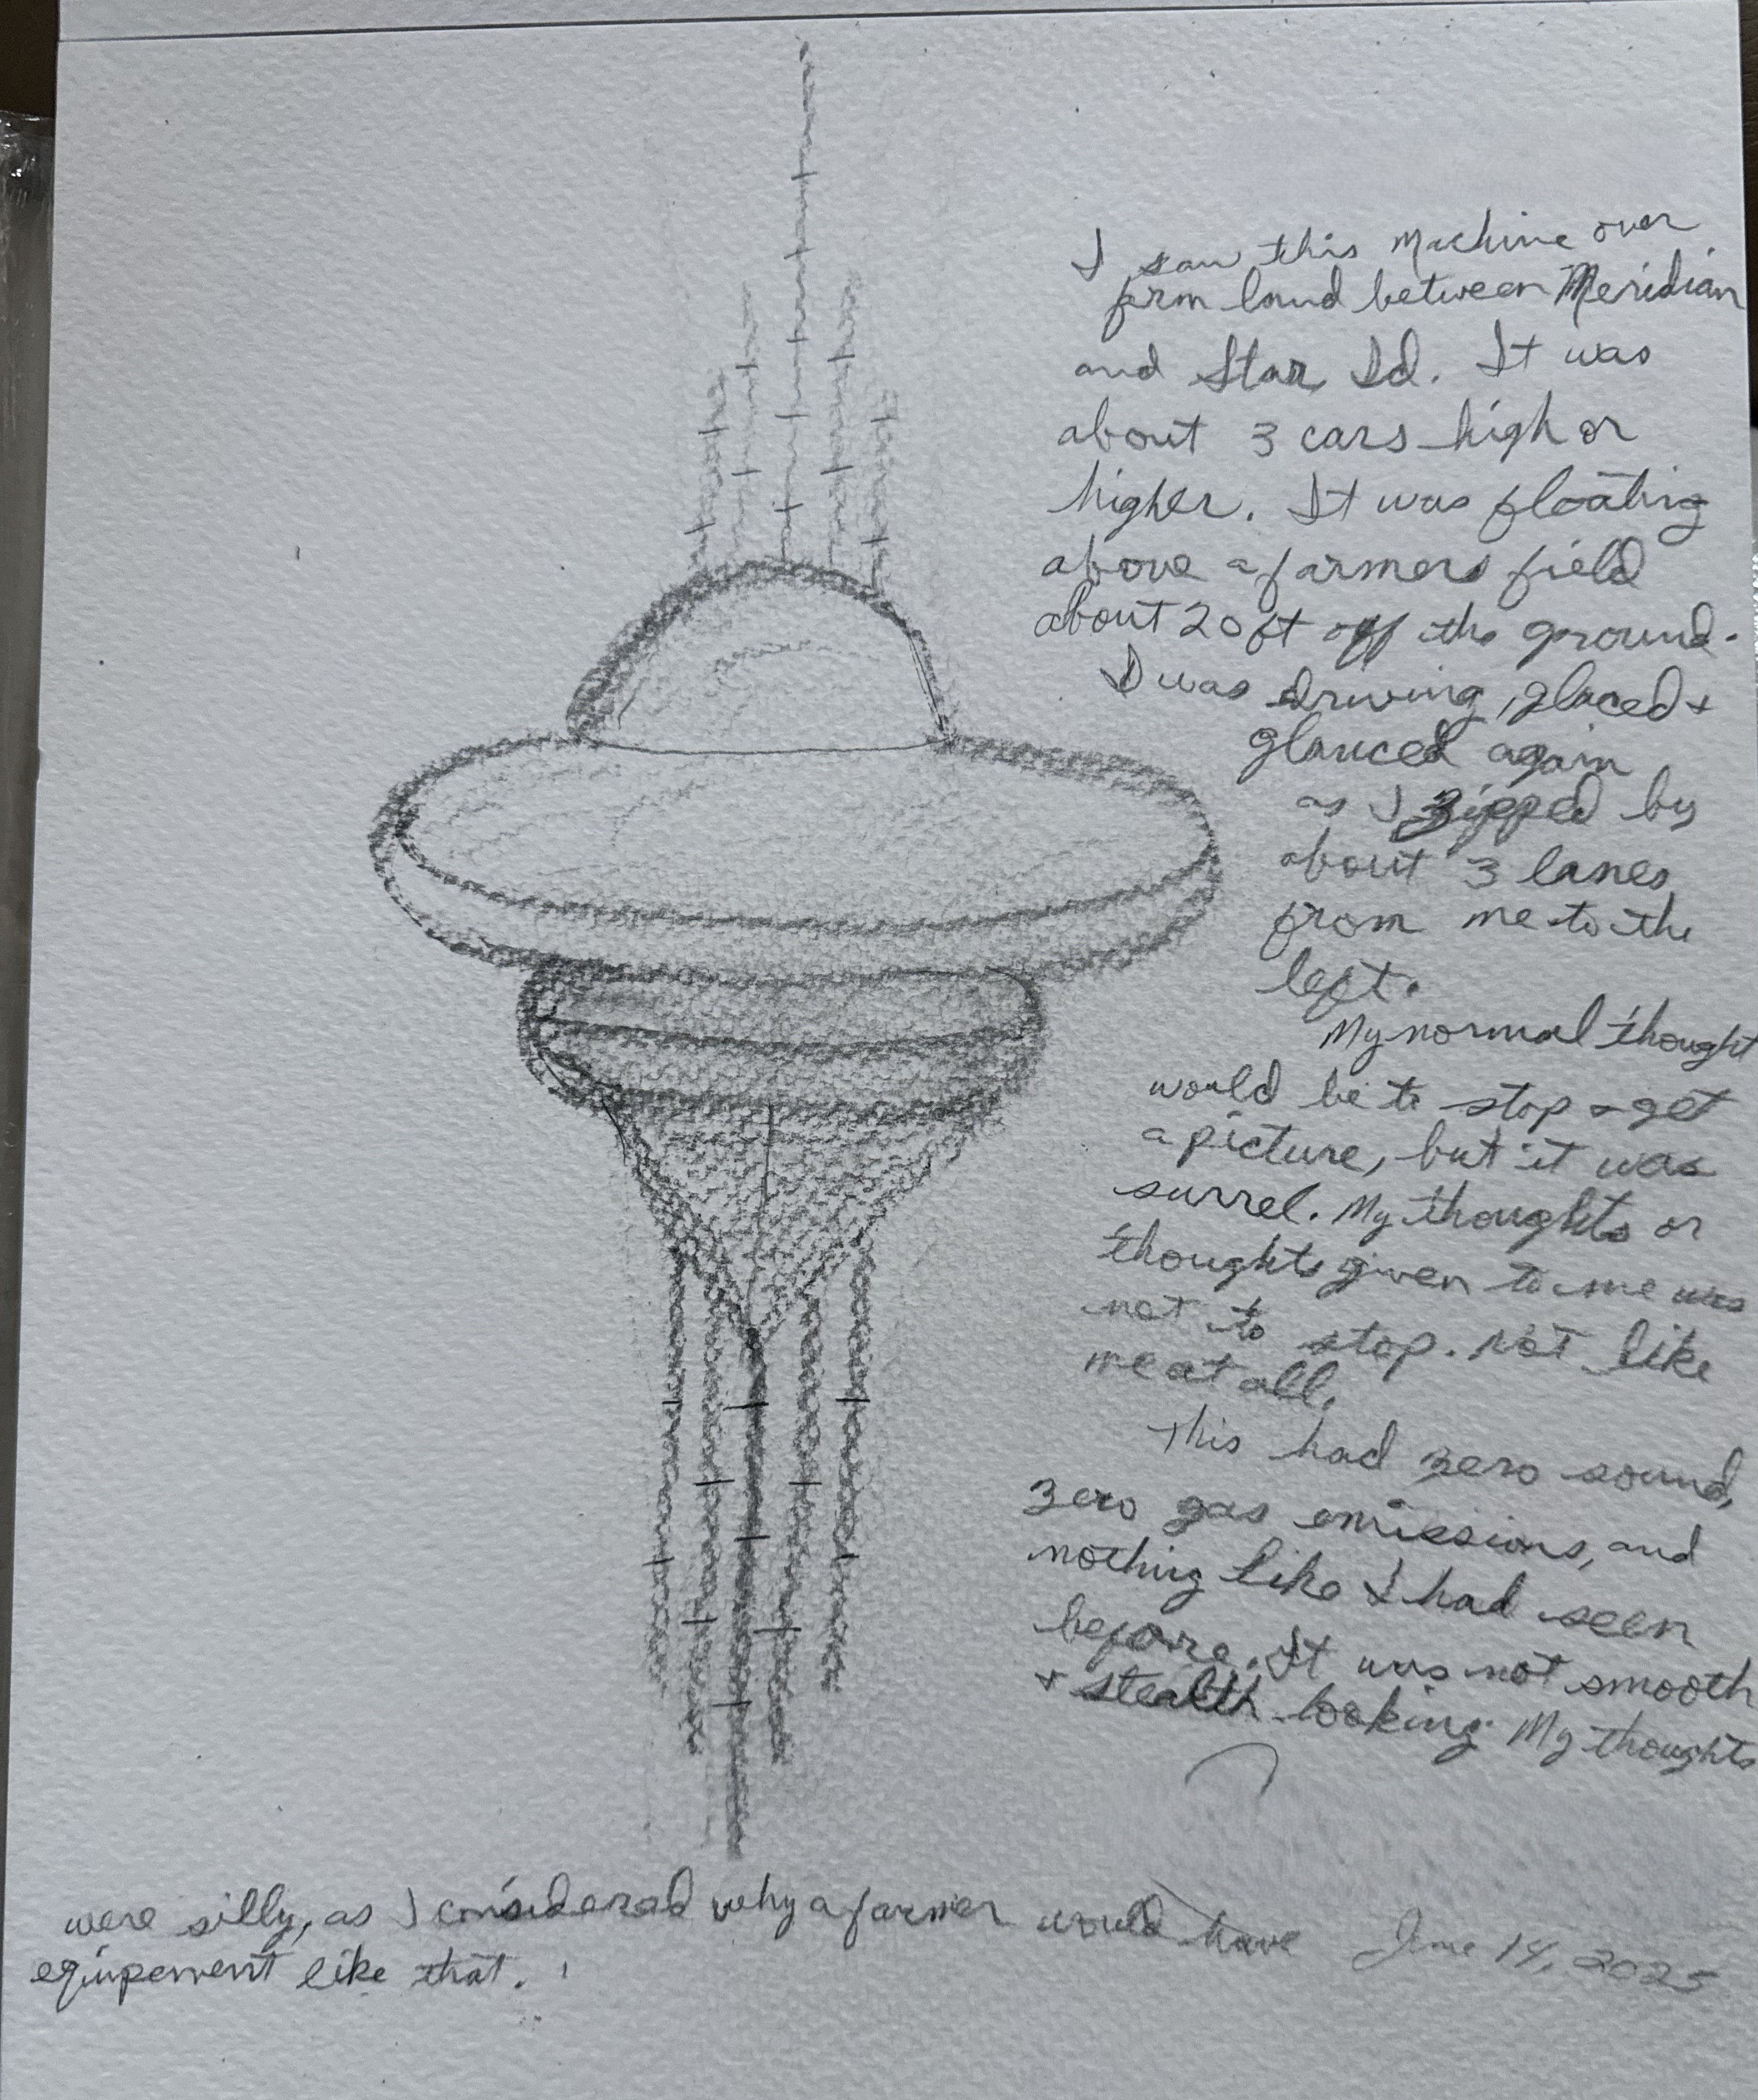 I saw this machine over
farm land between Meridian
and Star Id. It was
about 3 cars high or
higher. It was floating
above a farmers field
about 20 ft off the ground.
I was driving, glaced +
glanced again
as I zipped by
about 3 lanes
from me to the
left.
My normal thought
would be to stop & get
a picture, but it was
surrel. My thoughts or
thoughts given to me was
not to stop. Not like
me at all.
This had zero sound,
zero gas emissions, and
nothing like I had seen
before. It was not smooth
+ stealth looking. My thoughts
were silly, as I considered why a farmer would have
equipement like that. !
June 14, 2025